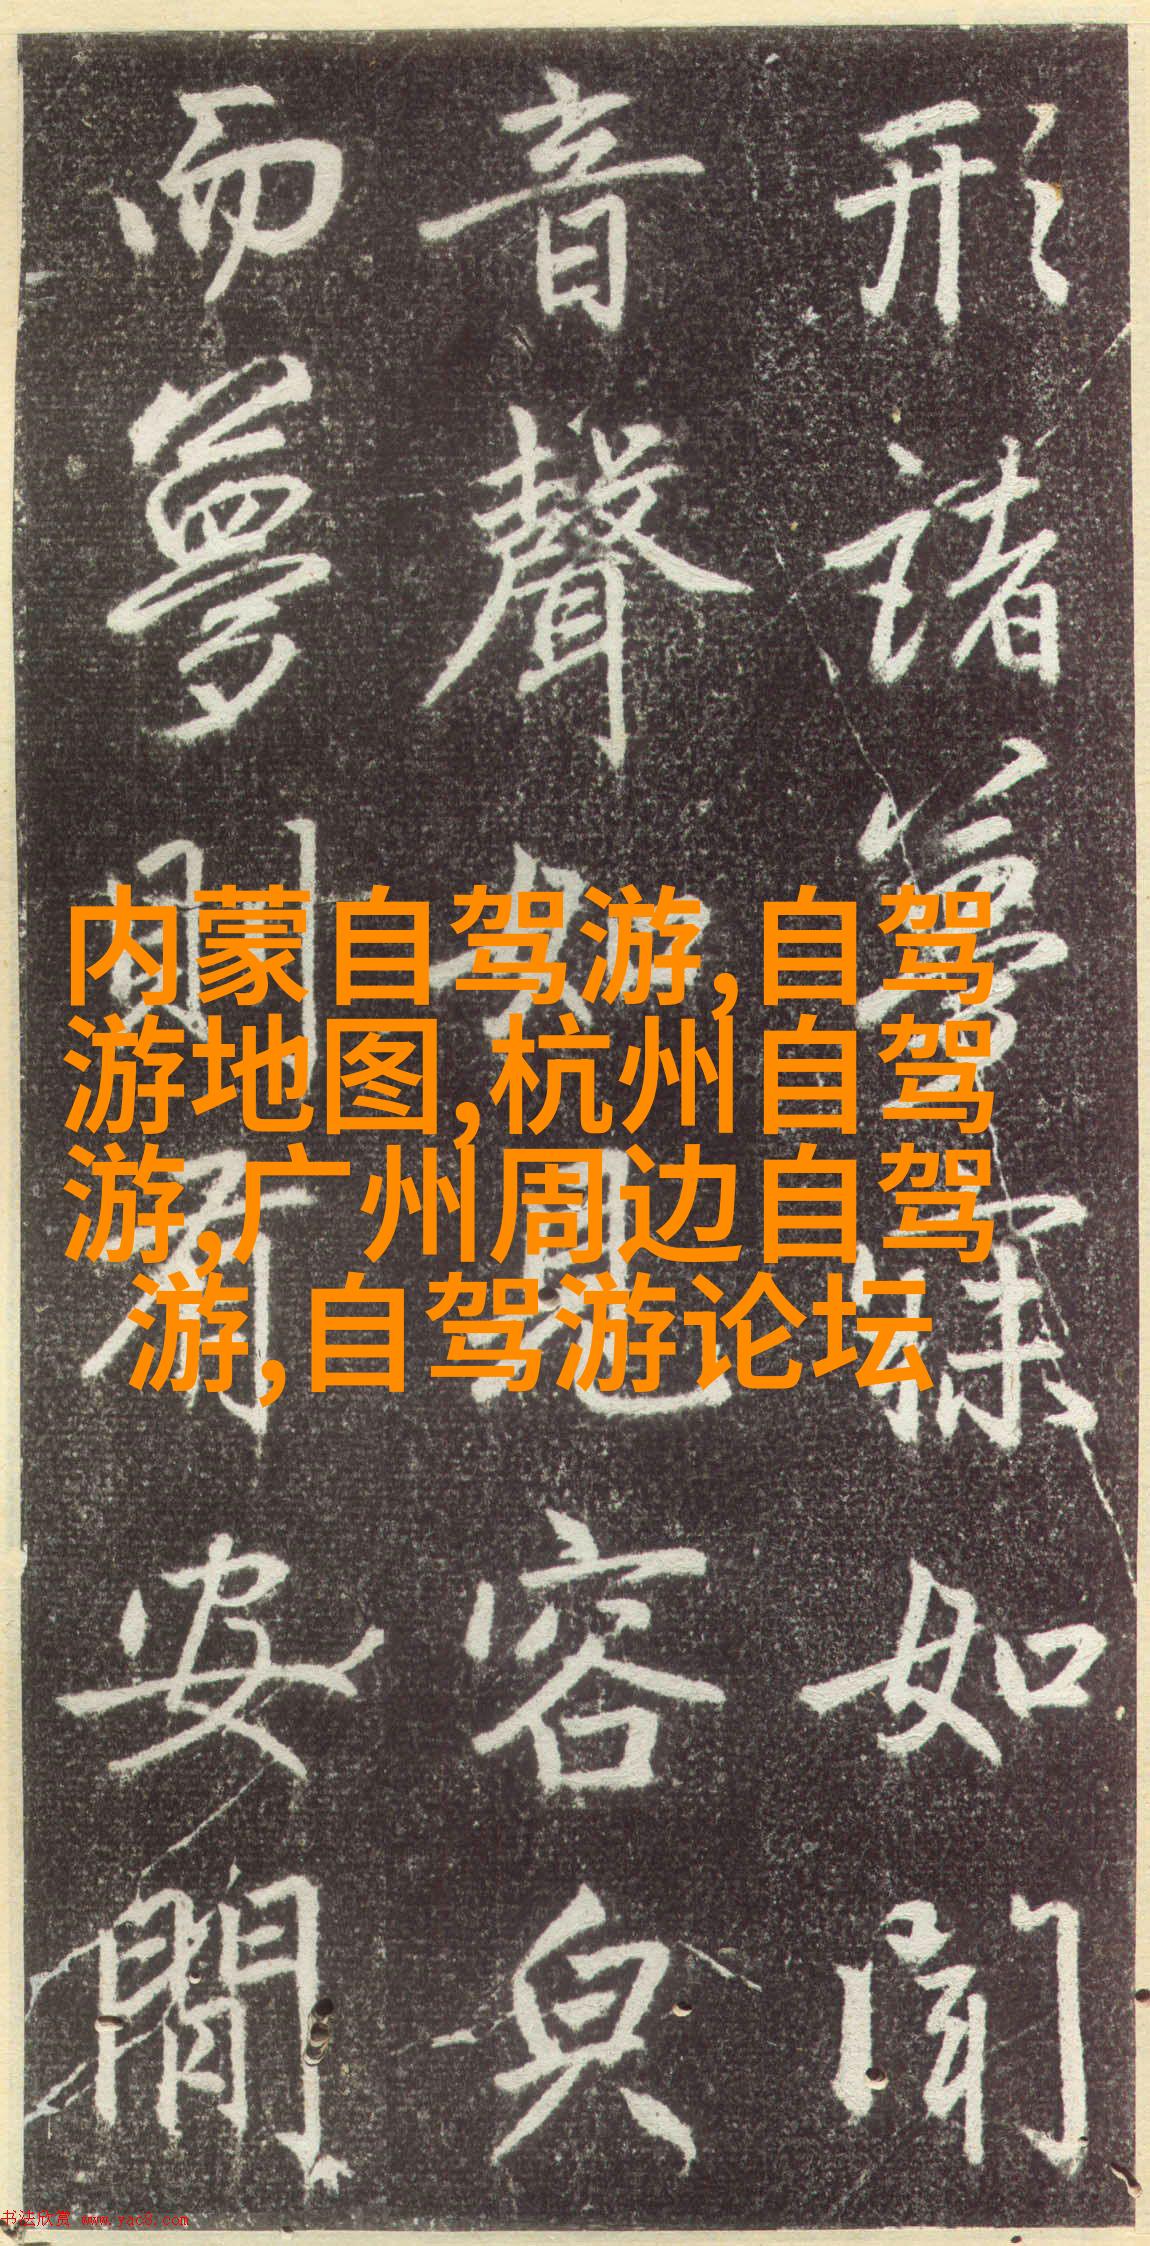 形諸夢寐如聞
音聲如見容皃
而夢則有安閒
内蒙自驾游,自驾
游地图,杭州自驾
游,广州周边自驾
游,自驾游论坛
书法欣赏 www.yac8.com